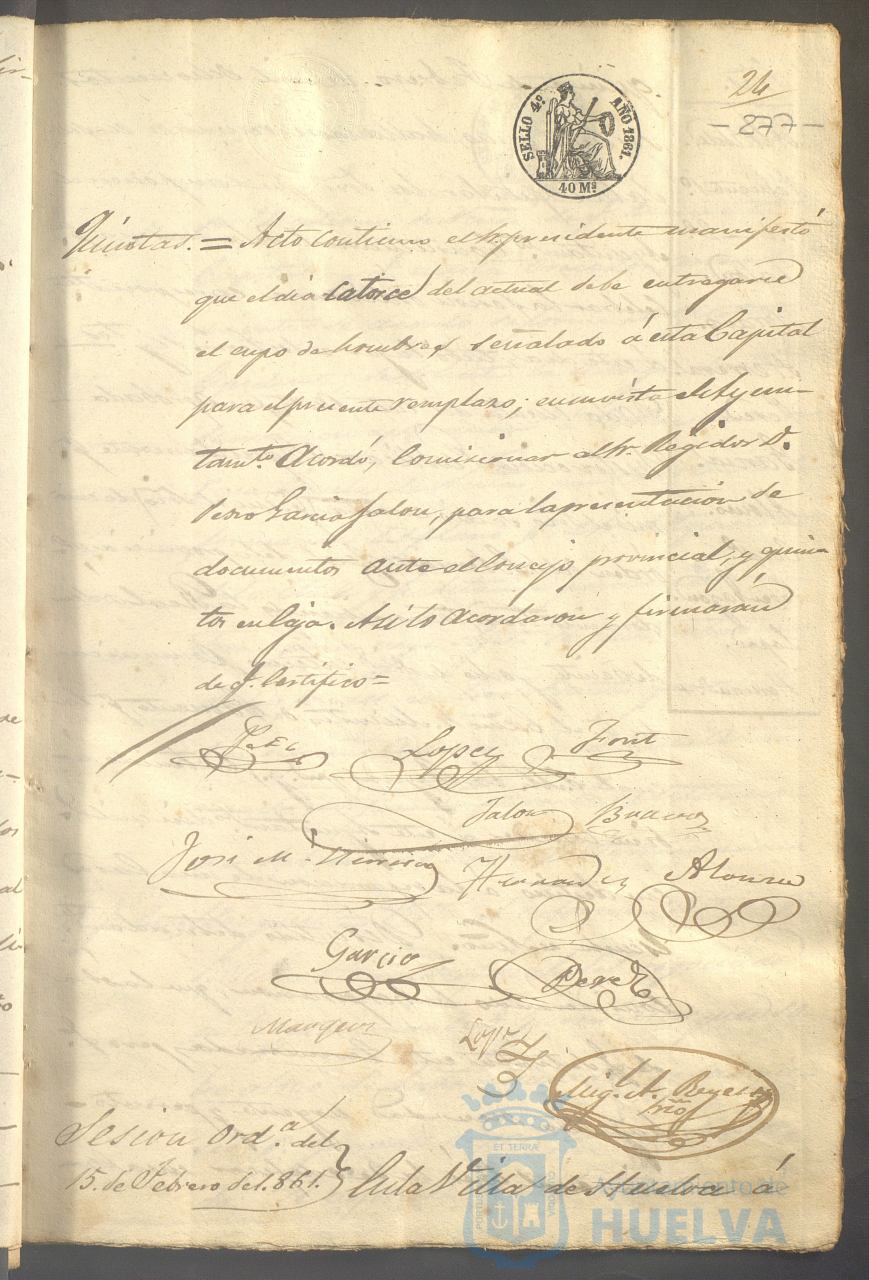 24
- 277 -
SELLO 4º AÑO 1861.
40 Mˢ
Quintas. = Acto continuo el Sr. presidente manifestó
que el dia catorce del actual debe entregarse
el cupo de hombres señalado á esta Capital
para el presente remplazo; en su vista el Ayun-
tamtº. Acordó, Comisionar al Sr. Regidor D.
Pedro Garcia Jalon, para la presentación de
documentos ante el Concejo provincial, y quin-
tos en Caja. Asi lo Acordaron y firmarán
de q. Certifico =
Lopez Font
Jalon Bravo
José Mª
Hernandez Alonso
Garcia
Perez
Lopz
Mig. A. Reyes
Srio
Sesion Ordª. del
15. de Febrero de 1.861. En la Villa de Huelva á
ET TERRA
Ayuntamiento de
HUELVA